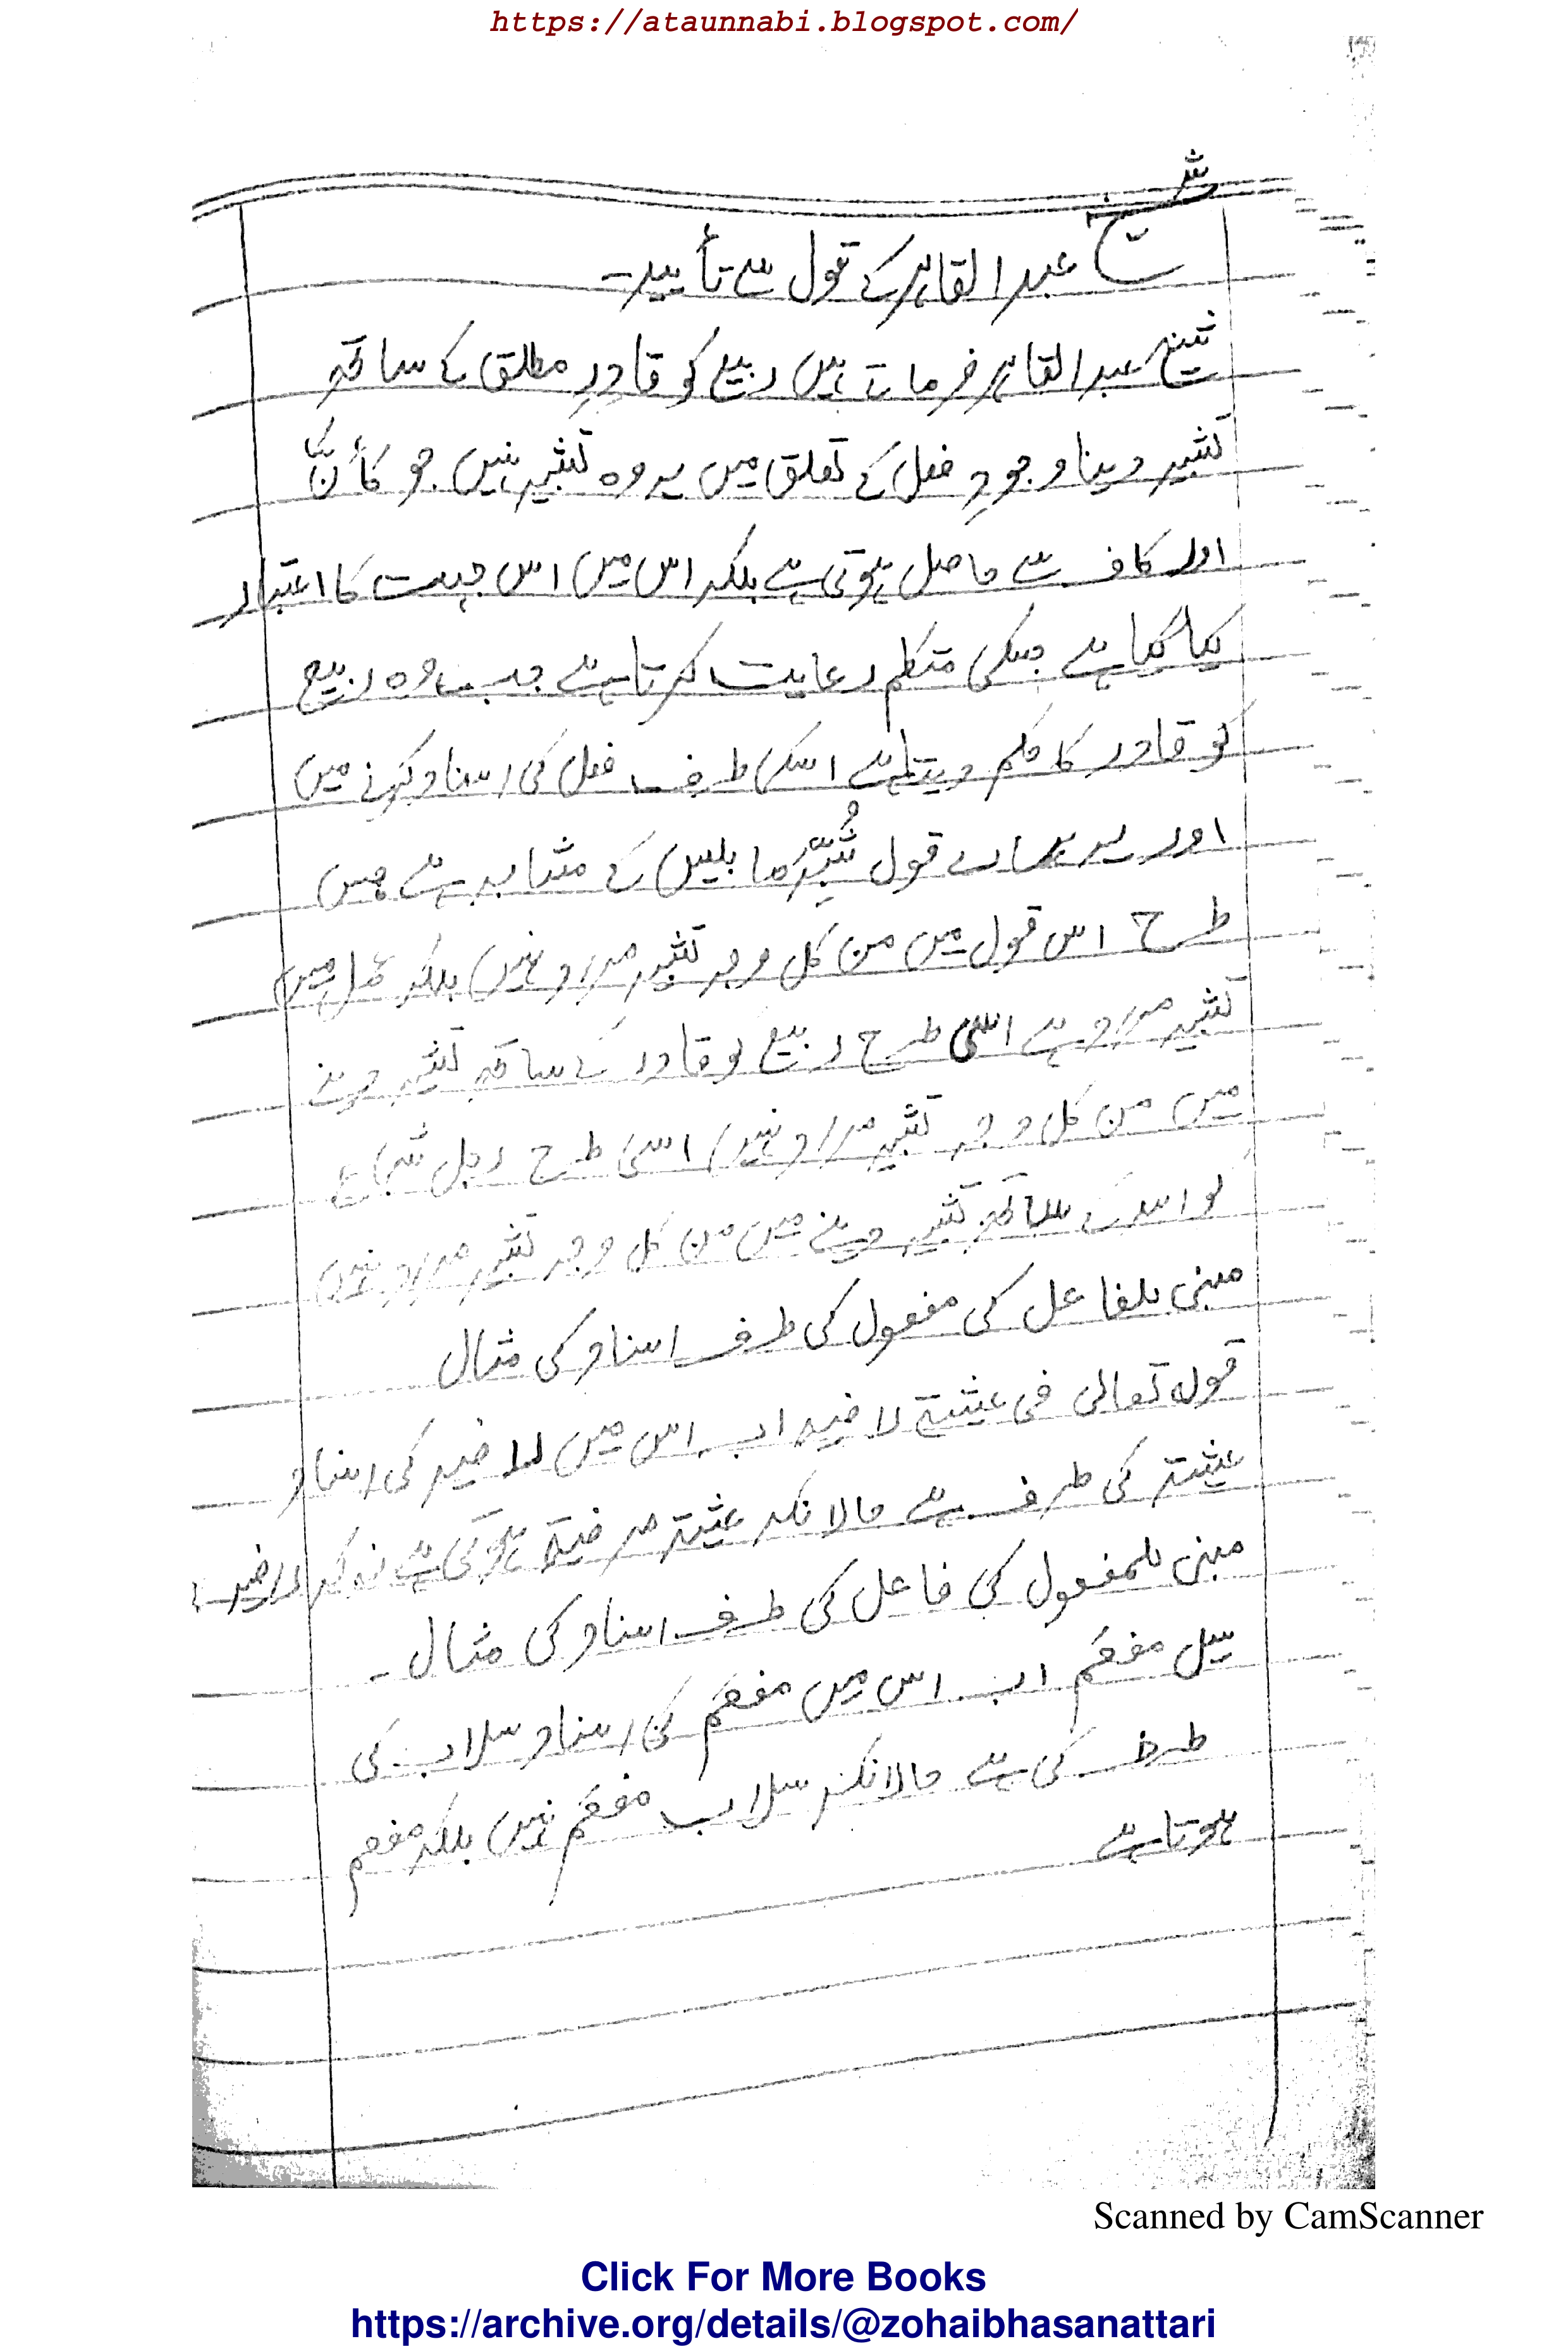 https://ataunnabi.blogspot.com/
شیخ عبد القاہر کے قول سے تأیید۔
شیخ عبد القاہر فرماتے ہیں ربیع کو قادرِ مطلق کے ساتھ
تشبیہ دینا وجودِ فعل کے تعلق میں یہ وہ تشبیہ نہیں جو کأنَّ
اور کاف سے حاصل ہوتی ہے بلکہ اس میں اس جہت کا اعتبار
کیا گیا ہے جسکی متکلم رعایت کرتا ہے جب وہ ربیع
کو قادر کا حکم دیتا ہے اسکی طرف فعل کی اسناد کرنے میں
اور یہ ہمارے قول شُبِّہَ ما بلیس کے مشابہ ہے جس
طرح اس قول میں من کل وجہ تشبیہ مراد نہیں بلکہ عمل میں
تشبیہ مراد ہے اسی طرح ربیع کو قادر کے ساتھ تشبیہ دینے
میں من کل وجہ تشبیہ مراد نہیں اسی طرح رجل شجاع
کو اسد کے ساتھ تشبیہ دینے میں من کل وجہ تشبیہ مراد نہیں
مبنی للفاعل کی مفعول کی طرف اسناد کی مثال
قولہ تعالی فی عیشۃ راضیہ اب اس میں راضیہ کی اسناد
عیشتہ کی طرف ہے حالانکہ عیشتہ مرضیۃ ہوتی ہے نہ کہ راضیہ
مبنی للمفعول کی فاعل کی طرف اسناد کی مثال ۔
سیل مفعَم اب اس میں مفعَم کی اسناد سیلاب کی
طرف کی ہے حالانکہ سیلاب مفعَم نہیں بلکہ مفعِم
ہوتا ہے
Scanned by CamScanner
Click For More Books
https://archive.org/details/@zohaibhasanattari